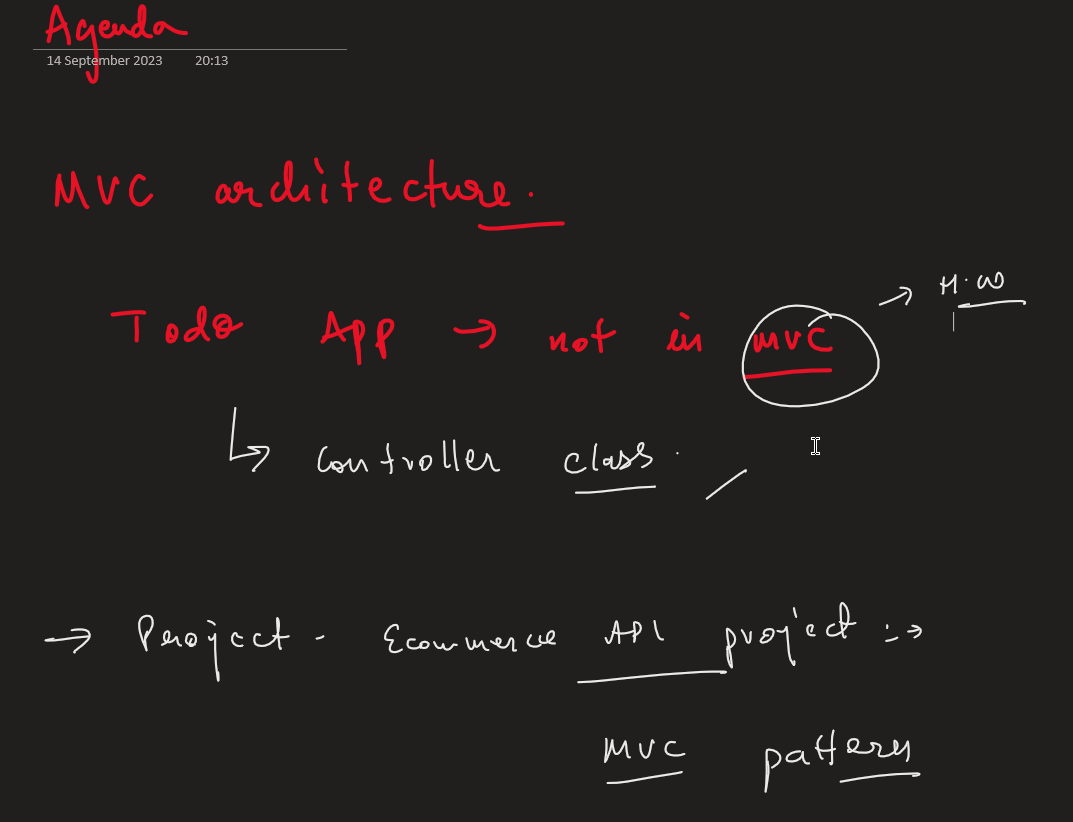 Agenda
14 September 2023 20:13
MVC architecture.
Todo App → not in mvc → H.W
↳ controller class.
→ Project - Ecommerce API project :→
MVC pattern